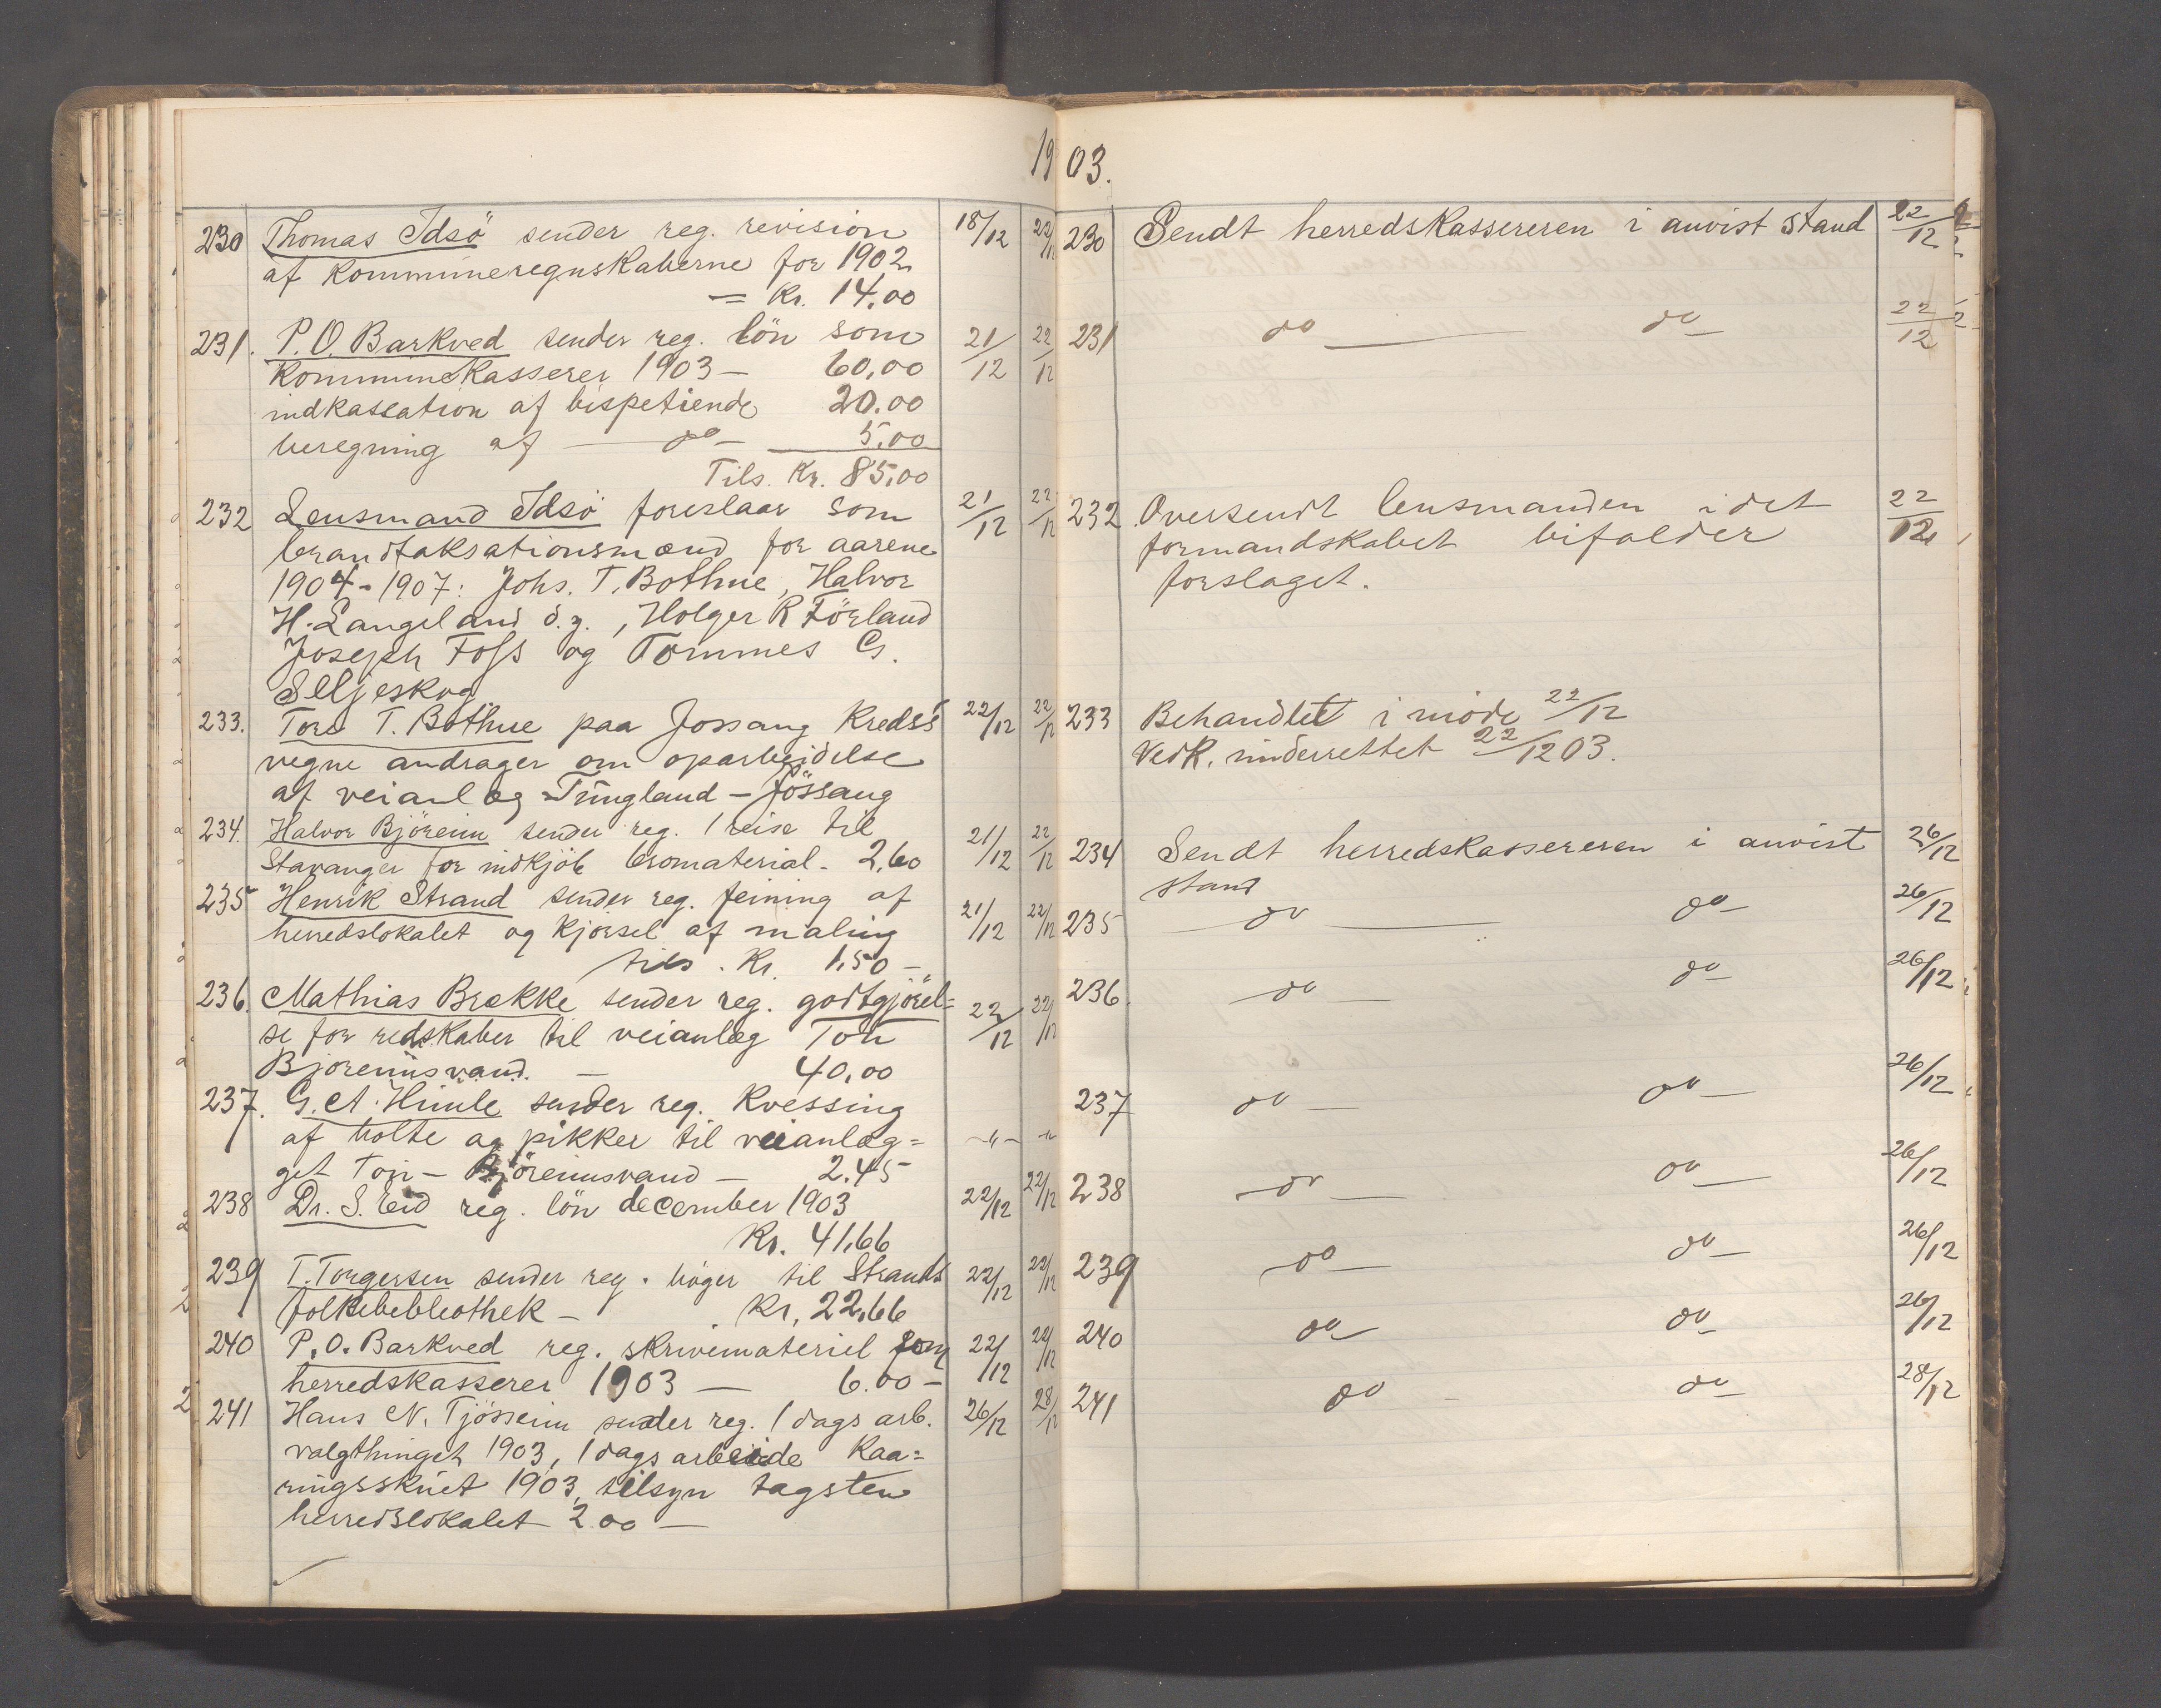 1903.
230 Thomas Idsö sender reg. revision 18/12 22/12
af kommuneregnskaberne for 1902
= Kr. 14,00
231. P.O. Barkved sender reg. lön som 21/12 22/12
kommunekasserer 1903 – 60,00
indkassation af bispetiende 20.00
beregning af — do – 5,00
Tils. Kr. 85,00
232 Lensmand Idsö foreslaar som 21/12 22/12
brandtaksationsmænd for aarene
1904-1907: Johs. T. Bothne, Halvor
H. Langeland d.y., Holger R Förland
Joseph Foss og Tommes G.
Seljeskog
233. Tore T. Bothne paa Jossang Kreds's 22/12 22/12
vegne andrager om oparbeidelse
af veianlæg Tungland – Jössang
234. Halvor Björeim sender reg. 1 reise til 21/12 22/12
Stavanger for indkjöb bromaterial - 2,60
235 Henrik Strand sender reg. feining af 21/12 22/12
herredslokalet og kjörsel af maling
tils. Kr. 1,50 –
236. Mathias Brekke sender reg. godtgjörel= 22/12 22/12
se for redskaber til veianlæg Tou
Björeimsvand. – 40,00
237. G. A. Himle sender reg. Kvessing
af bolte og pikker til veianlæg= -"- -"-
get Tou – Björeimsvand – 2.45
238 Dr. S. Eid reg. lön december 1903 22/12 22/12
Kr. 41,66
239 T. Torgersen sender reg. böger til Strands 22/12 22/12
folkebebliothek – Kr. 22,66
240 P.O. Barkved reg. skrivemateriel som 22/12 22/12
herredskasserer 1903 — 6.00 –
241 Hans N. Tjösseim sender reg. 1 dags arb. 26/12 28/12
valgthinget 1903, 1 dags arbeide Kaa=
ringsskuet 1903, tilsyn tagsten
herredslokalet 2 00 —
230 Sendt herredskassereren i anvist stand 22/12
231 do — do – 22/12
232. Oversendt lensmanden idet 22/12
formandskabet bifalder
forslaget.
233 Behandlet i möde 22/12
Vedk. underrettet 22/12 03.
234 Sendt herredskassereren i anvist 26/12
stand
235 do — do – 26/12
236. do – do – 26/12
237 do – do – 26/12
238 do — do — 26/12
239 do – do – 26/12
240 do do – 26/12
241 do - do – 28/12